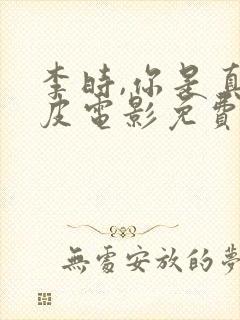 李時,你是真
皮電影免費
無處安放的夢